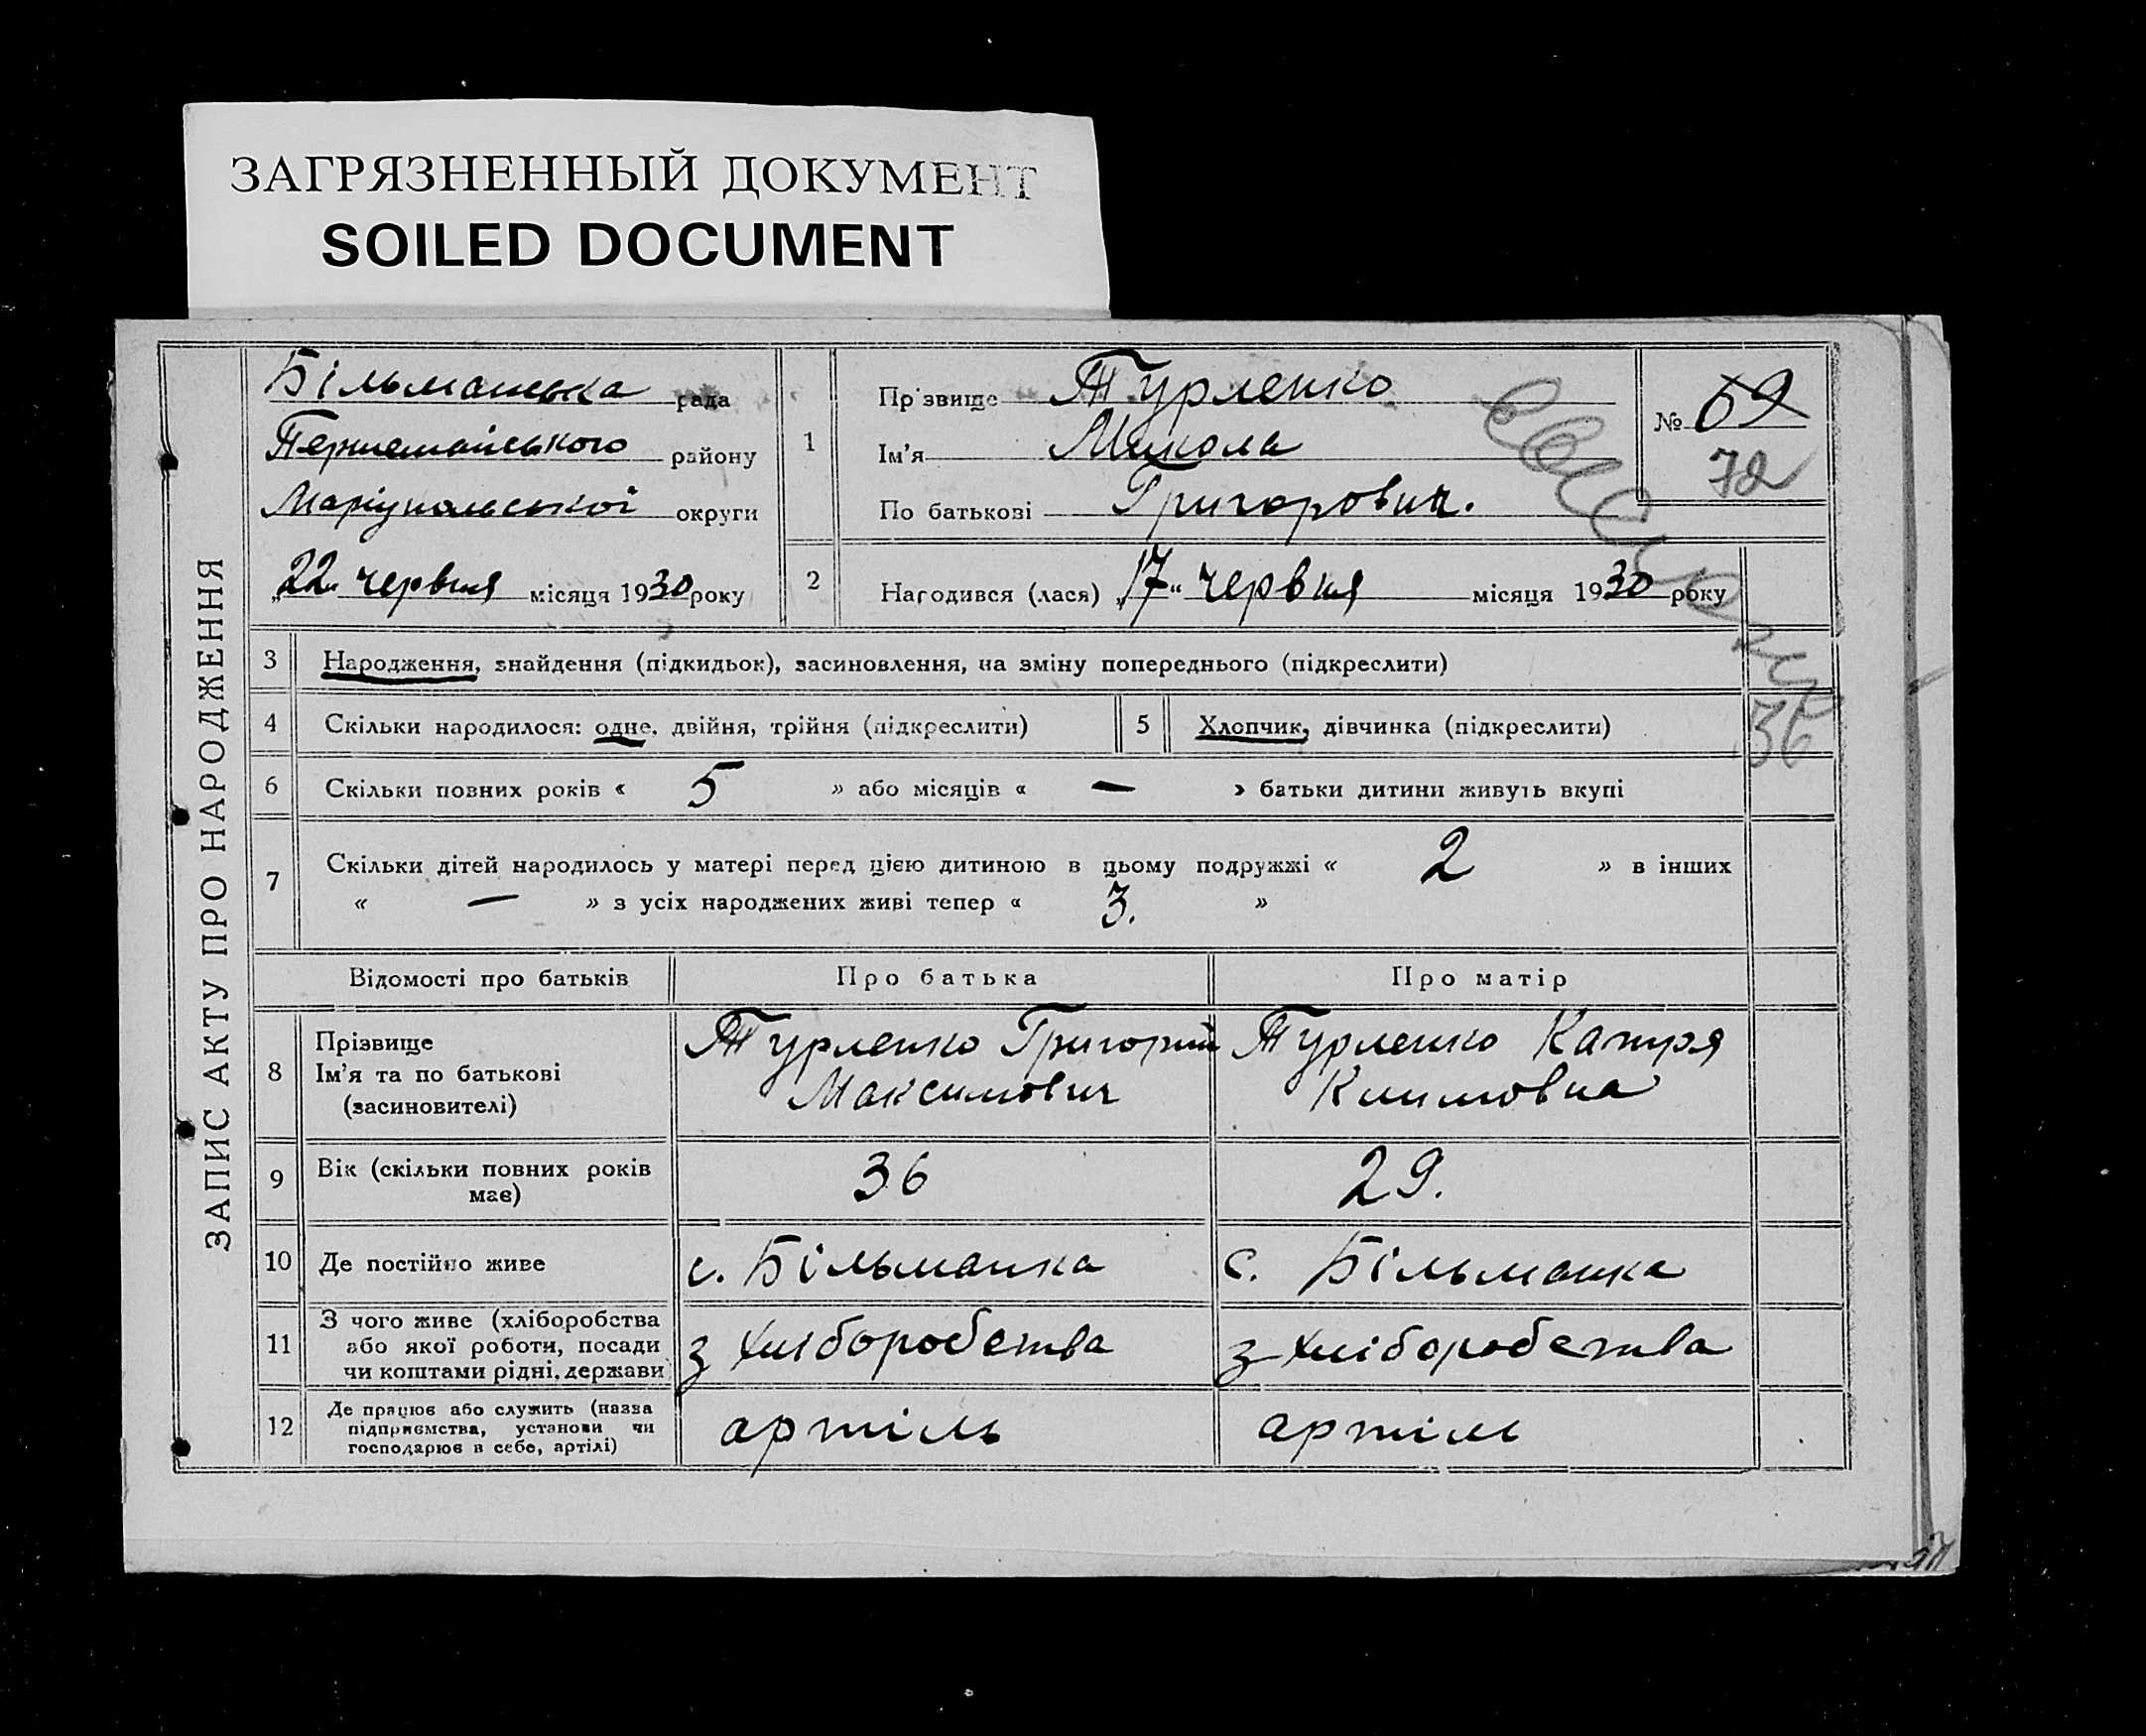 ЗАГРЯЗНЕННЫЙ ДОКУМЕНТ
SOILED DOCUMENT
ЗАПИС АКТУ ПРО НАРОДЖЕННЯ
Більманська рада
Першемайського району
Маріупольської округи
„22“ червня місяця 1930 року
1
Прізвище Турленко
Ім'я Микола
По батькові Григорович.
№ 69
72
2
Народився (лася) „17“ червня місяця 1930 року
3 Народження, знайдення (підкидьок), засиновлення, на зміну попереднього (підкреслити)
4 Скільки народилося: одне, двійня, трійня (підкреслити)
5 Хлопчик, дівчинка (підкреслити)
36
6 Скільки повних років « 5 » або місяців « — » батьки дитини живуть вкупі
7 Скільки дітей народилось у матері перед цією дитиною в цьому подружжі « 2 » в інших
« — » з усіх народжених живі тепер « 3. »
Відомості про батьків Про батька Про матір
8 Прізвище
Ім'я та по батькові
(засиновителі)
Турленко Григорий
Максимович
Турленко Катря
Климовна
9 Вік (скільки повних років
має)
36
29.
10 Де постійно живе
с. Більманка
с. Більманка
11 З чого живе (хліборобства
або якої роботи, посади
чи коштами рідні, держави
з хліборобства
з хліборобства
12 Де працює або служить (назва
підприємства, установи чи
господарює в себе, артілі)
артіль
артіль